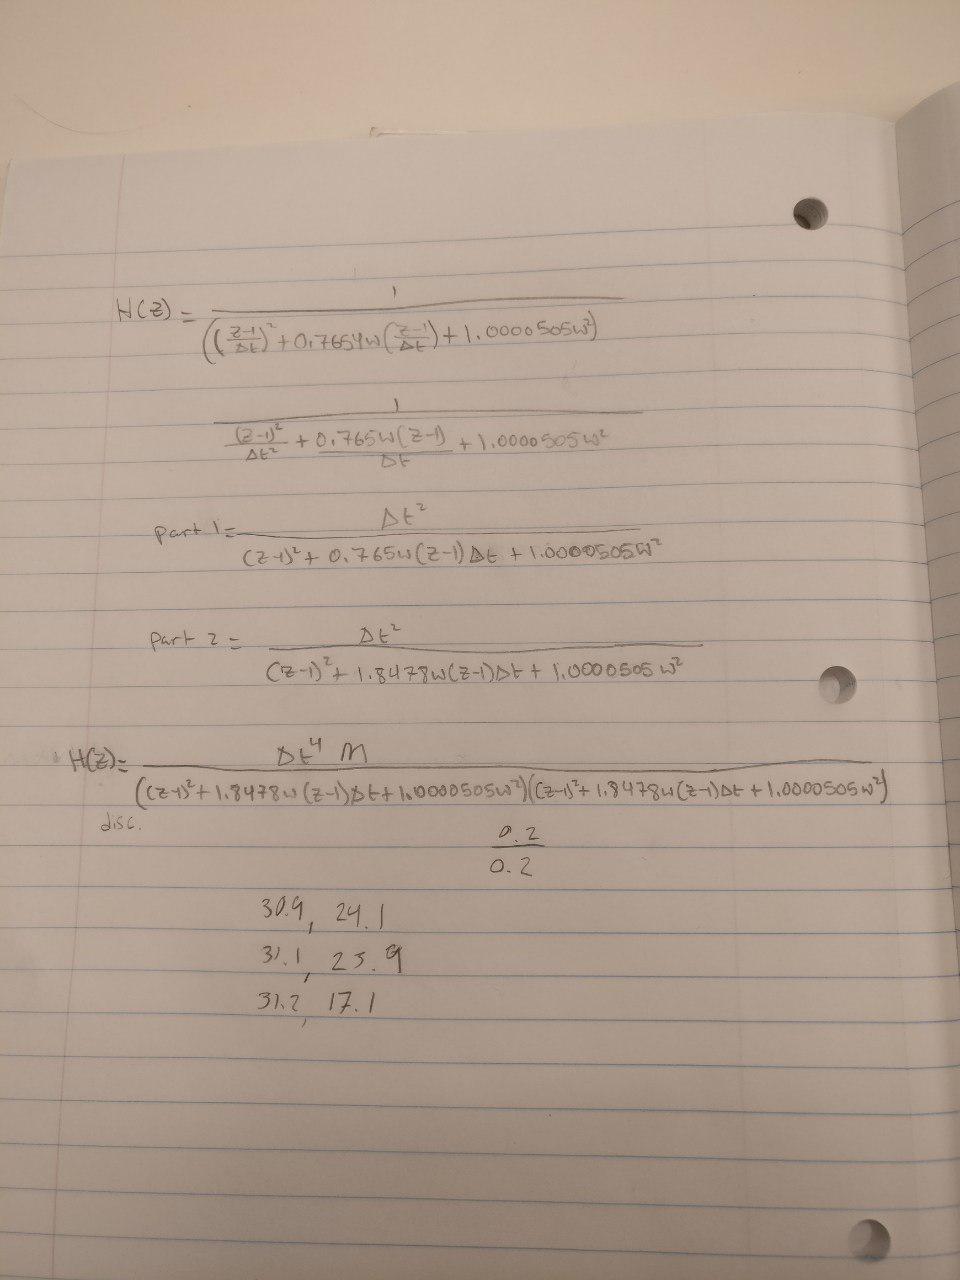 H(z) = 1 / (((z-1)/Δt)² + 0.7654w((z-1)/Δt) + 1.0000505w²)
1 / ((z-1)²/Δt² + 0.765w(z-1)/Δt + 1.0000505w²)
Part 1 = Δt² / ((z-1)² + 0.765w(z-1)Δt + 1.0000505w²)
Part 2 = Δt² / ((z-1)² + 1.8478w(z-1)Δt + 1.0000505w²)
H(z) = Δt⁴ M / (((z-1)² + 1.8478w(z-1)Δt + 1.0000505w²)((z-1)² + 1.8478w(z-1)Δt + 1.0000505w²))
disc.
0.2 / 0.2
30.9, 24.1
31.1, 23.9
31.2, 17.1